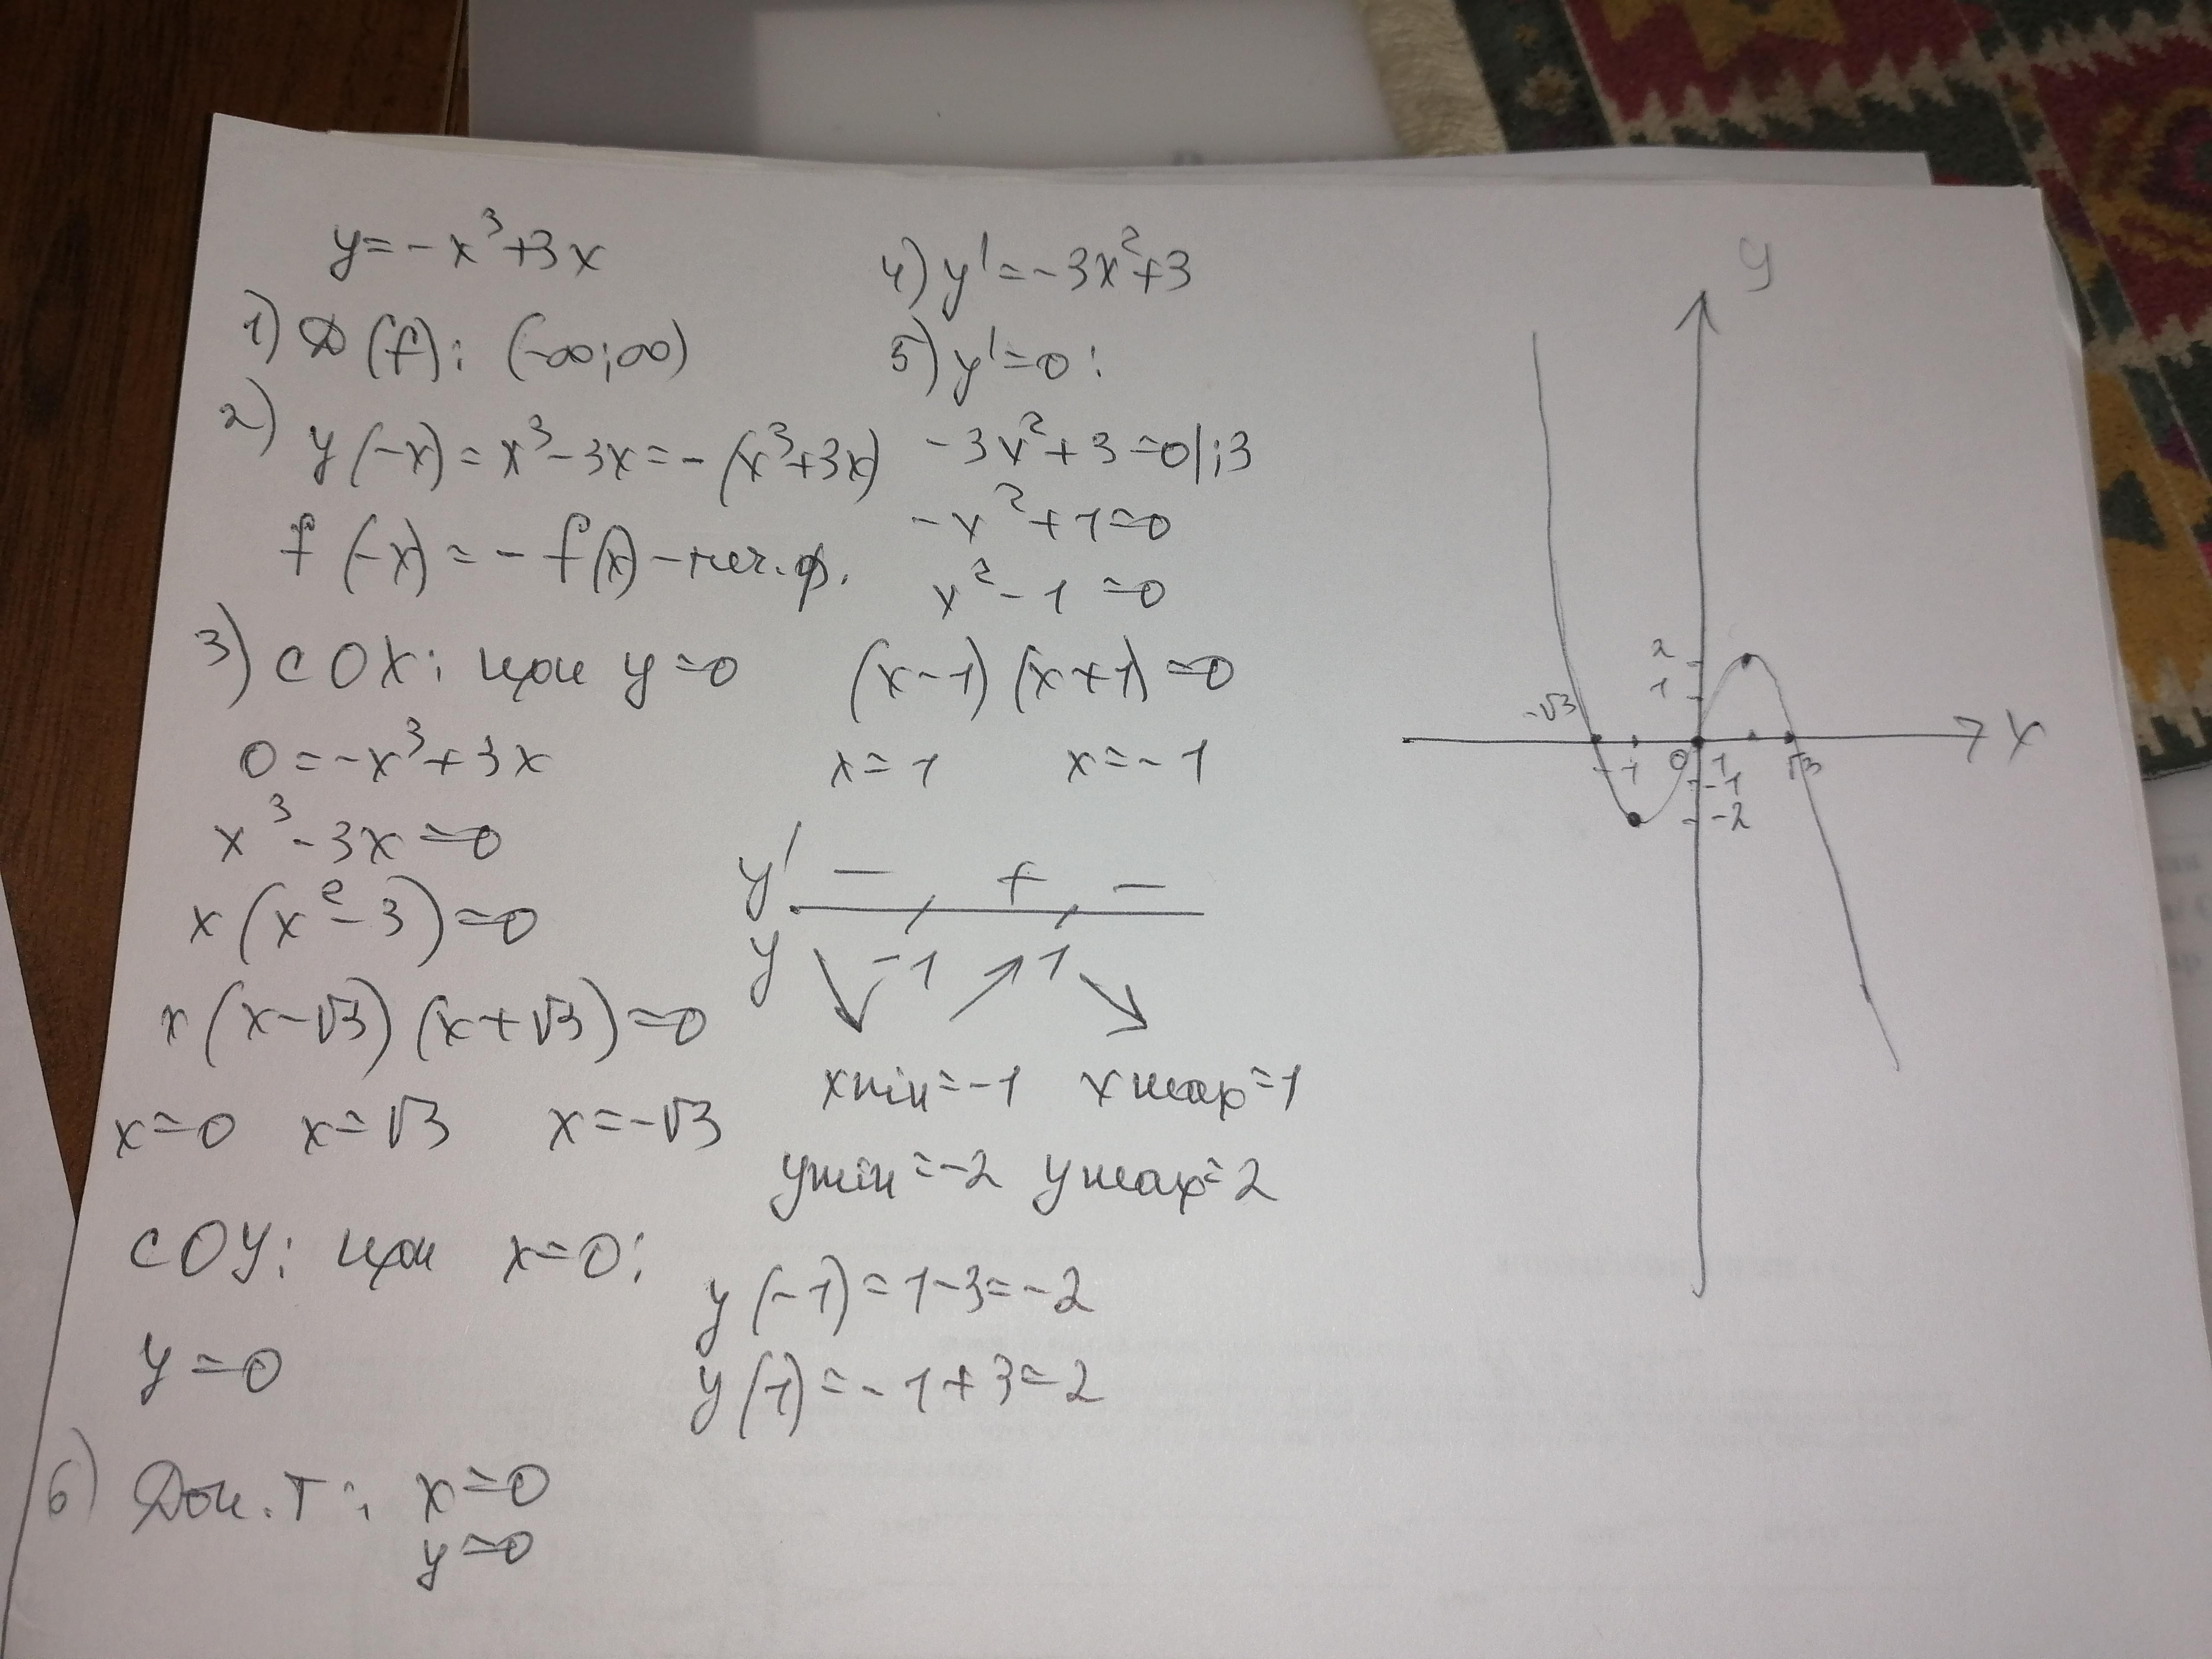 y=-x³+3x
1) D(f): (-∞;∞)
2) y(-x)=x³-3x=-(x³+3x)
f(-x)=-f(x)-неч.ф.
3) с OX: при y=0
0=-x³+3x
x³-3x=0
x(x²-3)=0
x(x-√3)(x+√3)=0
x=0 x=√3 x=-√3
с OY: при x=0:
y=0
6) Доп.т: x=0
y=0
4) y'=-3x²+3
5) y'=0:
-3x²+3=0|:3
-x²+1=0
x²-1=0
(x-1)(x+1)=0
x=1 x=-1
y' - + -
y -1 1
xmin=-1 xmax=1
ymin=-2 ymax=2
y(-1)=1-3=-2
y(1)=-1+3=2
y
2
1
-√3 x
-1 0 1 √3
-1
-2